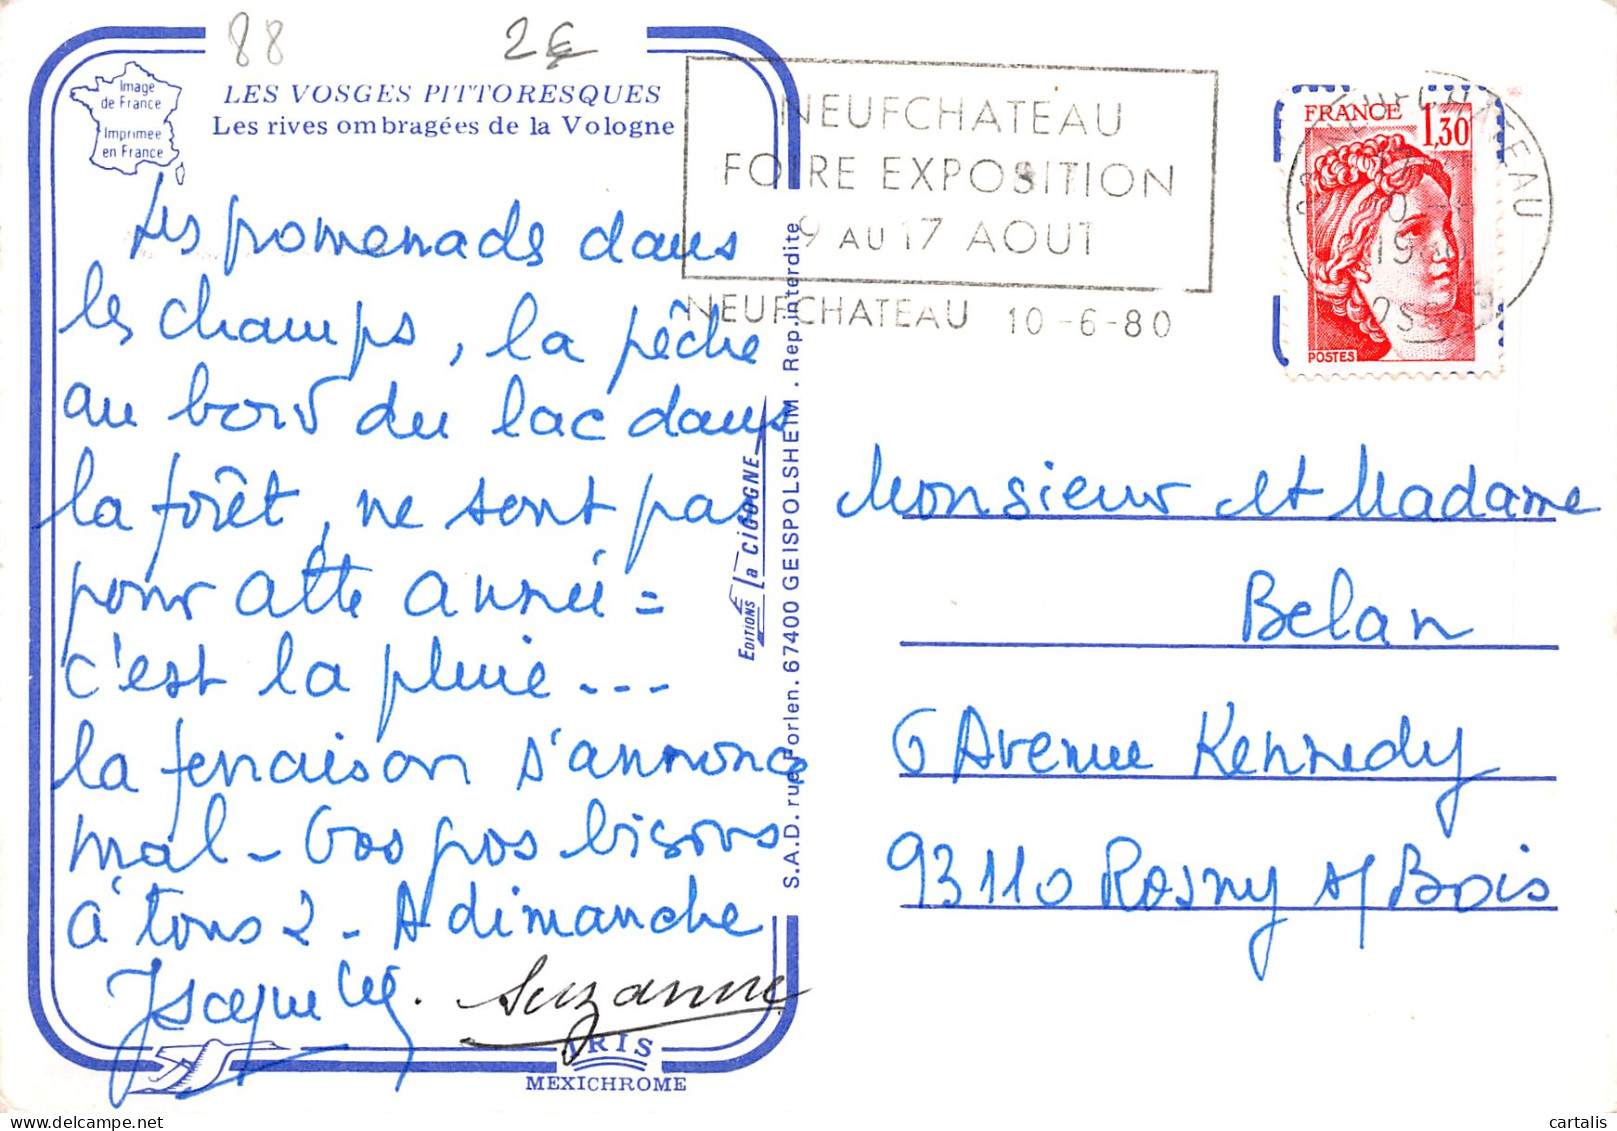 88
2€
Image
de France
Imprimée
en France
LES VOSGES PITTORESQUES
Les rives ombragées de la Vologne
NEUFCHATEAU
FOIRE EXPOSITION
9 AU 17 AOUT
NEUFCHATEAU 10-6-80
FRANCE 1,30
POSTES
Les promenads dans
les champs, la pêche
au bord du lac dans
la forêt, ne sont pas
pour cette année =
c'est la pluie ---
la fenaison s'annonce
mal - Gros gros bisous
à tous 2 - A dimanche
Jacqueline. Suzanne
EDITIONS La CIGOGNE
S.A.D. rue Forlen. 67400 GEISPOLSHEIM. Rep. interdite
Monsieur et Madame
Belan
6 Avenue Kennedy
93110 Rosny s/ Bois
IRIS
MEXICHROME
cartalis